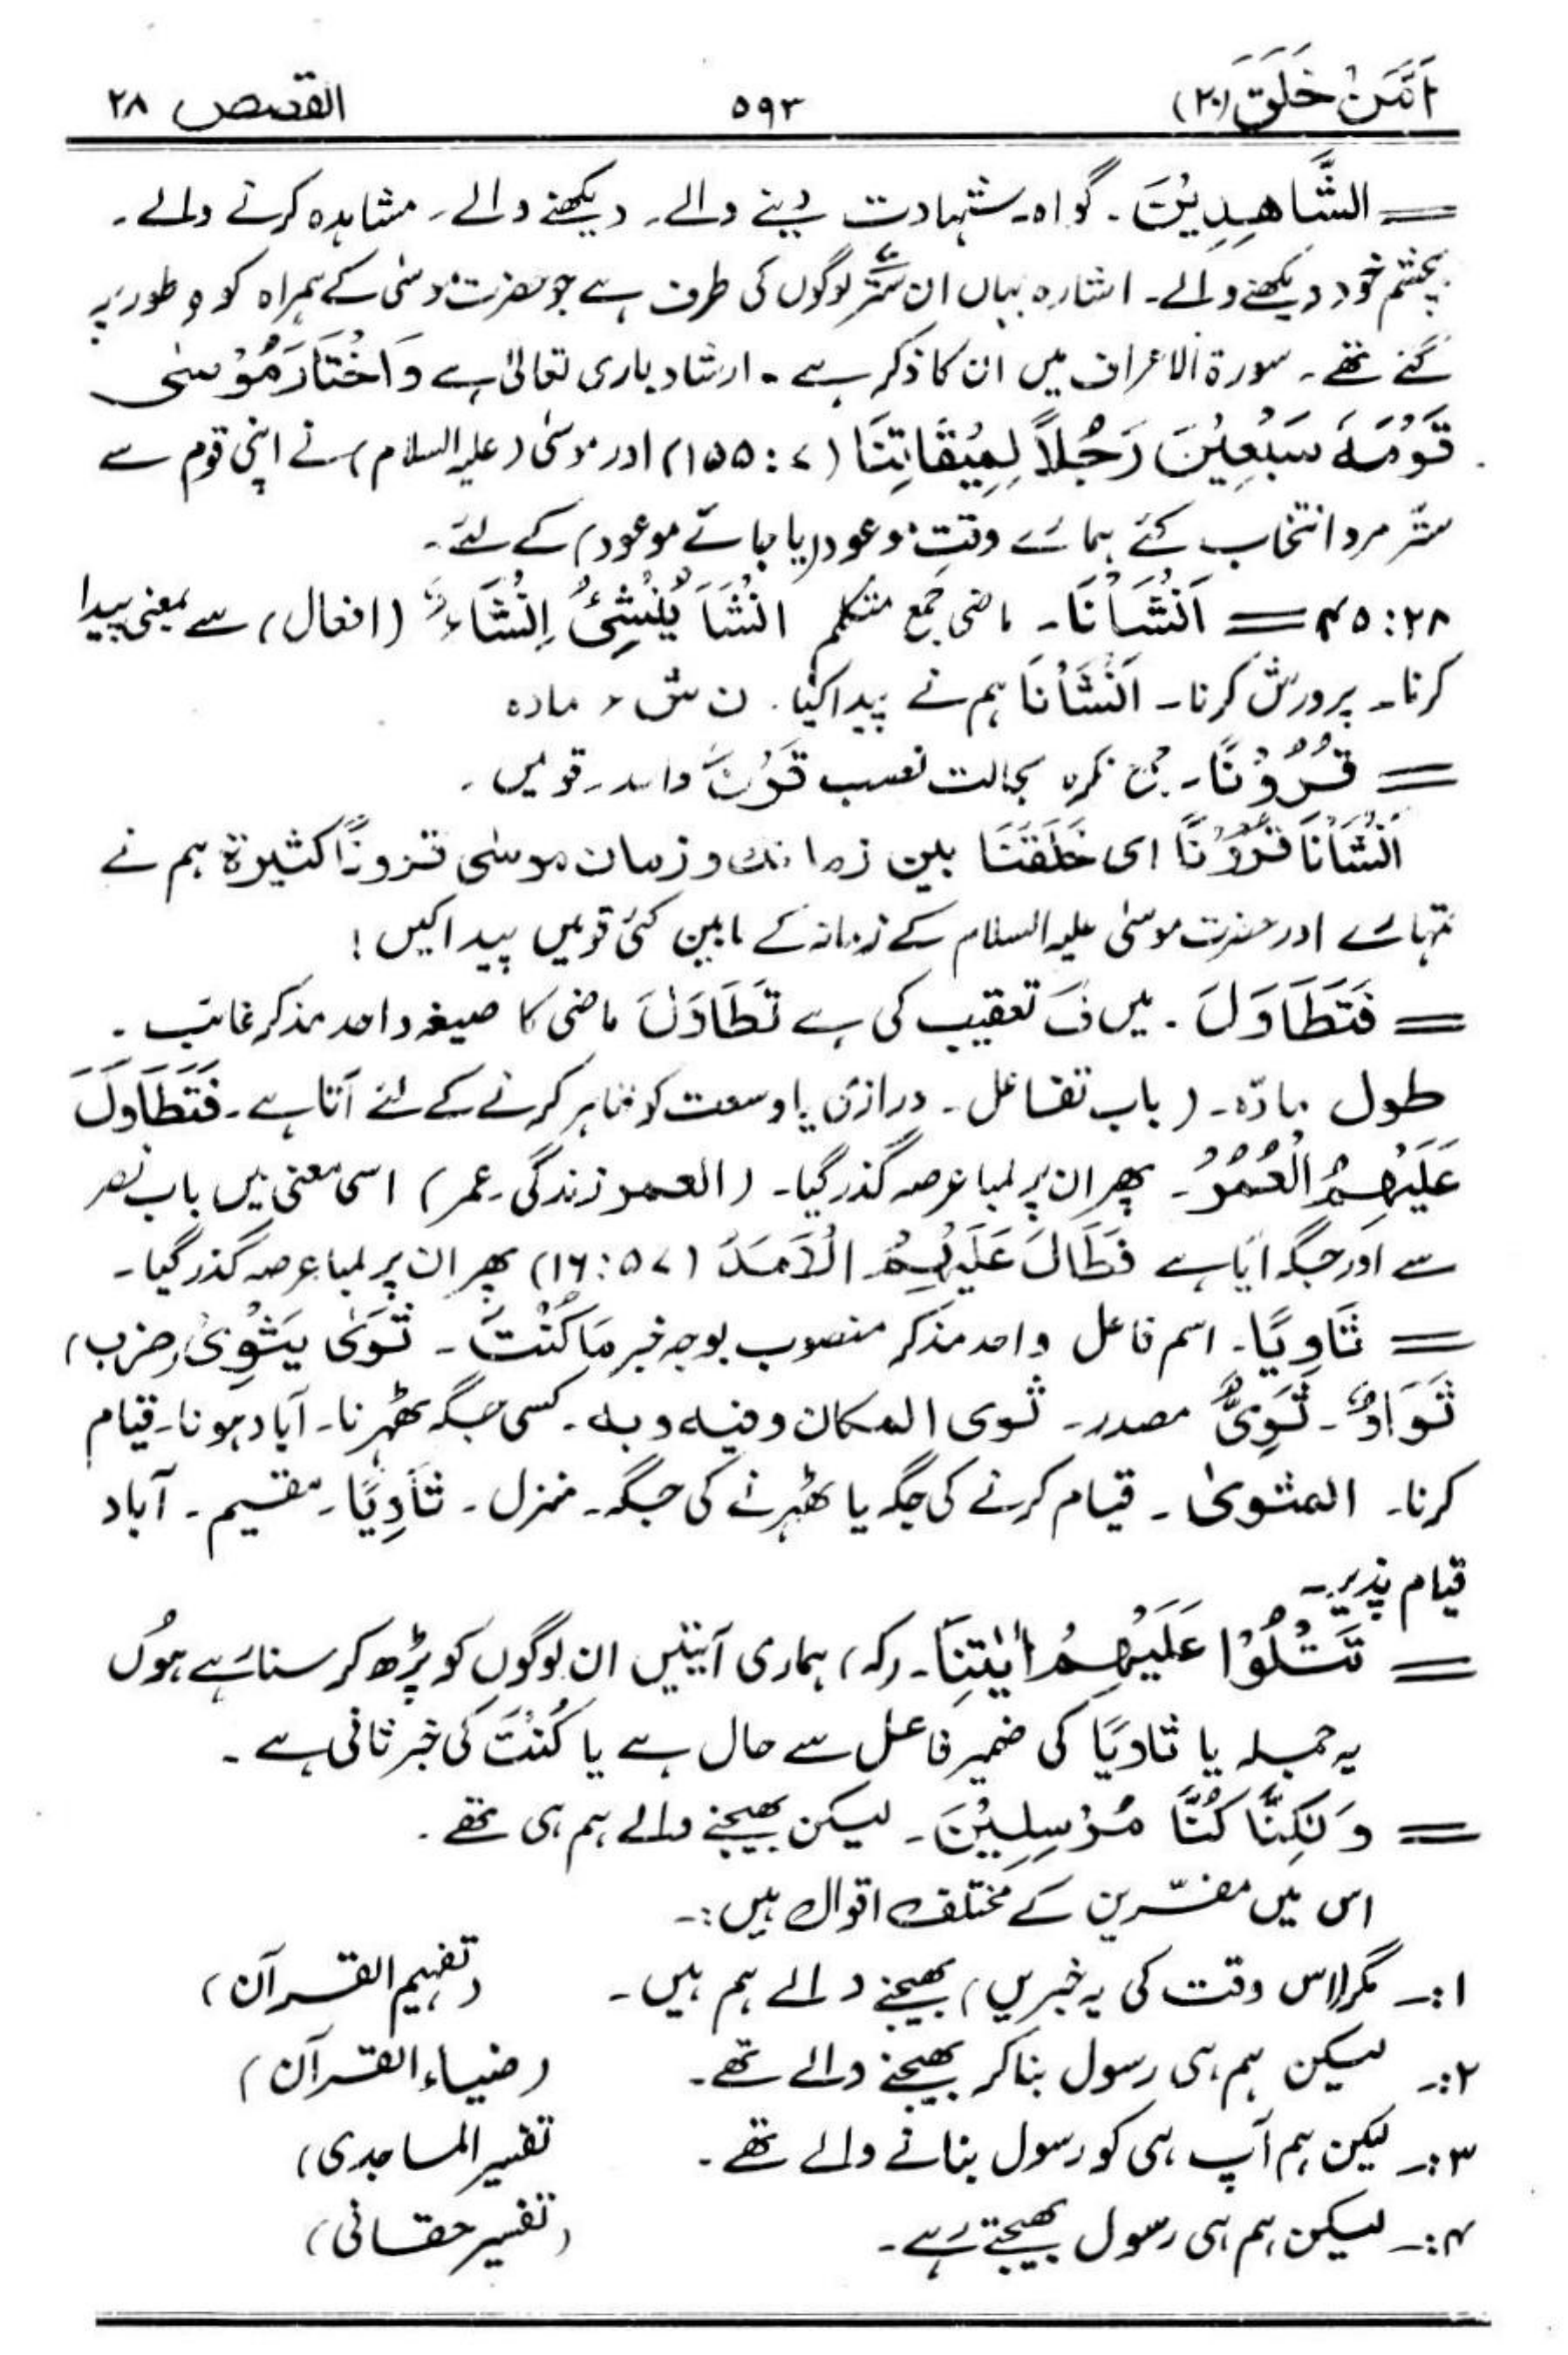 اَمَّنْ خَلَقَ (۲۰) ۵۹۳ القصص ۲۸
= الشَّاهِدِيْنَ۔ گواہ۔ شہادت دینے والے۔ دیکھنے والے۔ مشاہدہ کرنے والے۔
بچشم خود دیکھنے والے۔ اشارہ یہاں ان ستّر لوگوں کی طرف ہے جو حضرت موسیٰ کے ہمراہ کوہ طور پر
گئے تھے۔ سورۃ الاعراف میں ان کا ذکر ہے۔ ارشاد باری تعالیٰ ہے وَاخْتَارَ مُوْسٰی
قَوْمَہٗ سَبْعِیْنَ رَجُلاً لِّمِیْقَاتِنَا (۷ : ۱۵۵) اور موسیٰ (علیہ السلام) نے اپنی قوم سے
ستّر مرد انتخاب کئے ہمارے وقتِ موعود (یا جائے موعود) کے لئے۔
۲۸ : ۴۵ = اَنْشَاْنَا۔ ماضی جمع متکلم اَنْشَأَ یُنْشِیُٔ اِنْشَاءٌ (افعال) سے بمعنی پیدا
کرنا۔ پرورش کرنا۔ اَنْشَاْنَا ہم نے پیدا کیا۔ ن ش ء مادہ
= قُرُوْنًا۔ جمع نکرہ بحالت نصب قَرْنٌ واحد۔ قومیں۔
اَنْشَاْنَا قُرُوْنًا ای خَلَقْنَا بین زمانک و زمان موسٰی قرونًا کثیرۃ ہم نے
تمہارے اور حضرت موسیٰ علیہ السلام کے زمانہ کے مابین کئی قومیں پیدا کیں !
= فَتَطَاوَلَ۔ میں فَ تعقیب کی ہے تَطَاوَلَ ماضی کا صیغہ واحد مذکر غائب۔
طول مادّہ۔ (باب تفاعل۔ درازی یا وسعت کو ظاہر کرنے کے لئے آتا ہے۔ فَتَطَاوَلَ
عَلَیْهِمُ الْعُمُرُ۔ پھر ان پر لمبا عرصہ گذر گیا۔ (العمر زندگی۔ عمر) اسی معنی میں باب نصر
سے اور جگہ آیا ہے فَطَالَ عَلَیْهِمُ الْاَمَدُ (۵۷ : ۱۶) پھر ان پر لمبا عرصہ گذر گیا۔
= ثَاوِیًا۔ اسم فاعل واحد مذکر منصوب بوجہ خبر مَا کُنْتَ۔ ثَوٰی یَثْوِیْ (ضرب)
ثَوَاءٌ۔ ثَوِیٌّ مصدر۔ ثوی المکان و فیہ و بہ۔ کسی جگہ ٹھہرنا۔ آباد ہونا۔ قیام
کرنا۔ المثویٰ۔ قیام کرنے کی جگہ یا ٹھہرنے کی جگہ۔ منزل۔ ثَاوِیًا۔ مقیم۔ آباد
قیام پذیر۔
= تَتْلُوْا عَلَیْهِمْ اٰیٰتِنَا۔ (کہ) ہماری آیتیں ان لوگوں کو پڑھ کر سنا رہے ہوں
یہ جملہ یا ثاویًا کی ضمیر فاعل سے حال ہے یا کُنْتَ کی خبر ثانی ہے۔
= وَ لٰکِنَّا کُنَّا مُرْسِلِیْنَ۔ لیکن بھیجنے والے ہم ہی تھے۔
اس میں مفسّرین کے مختلف اقوال ہیں :۔
۱ :۔ مگر (اس وقت کی یہ خبریں) بھیجنے والے ہم ہیں۔ (تفہیم القرآن)
۲ :۔ لیکن ہم ہی رسول بنا کر بھیجنے والے تھے۔ (ضیاء القرآن)
۳ :۔ لیکن ہم آپ ہی کو رسول بنانے والے تھے۔ تفسیر الماجدی)
۴ :۔ لیکن ہم ہی رسول بھیجتے رہے۔ (تفسیر حقانی)